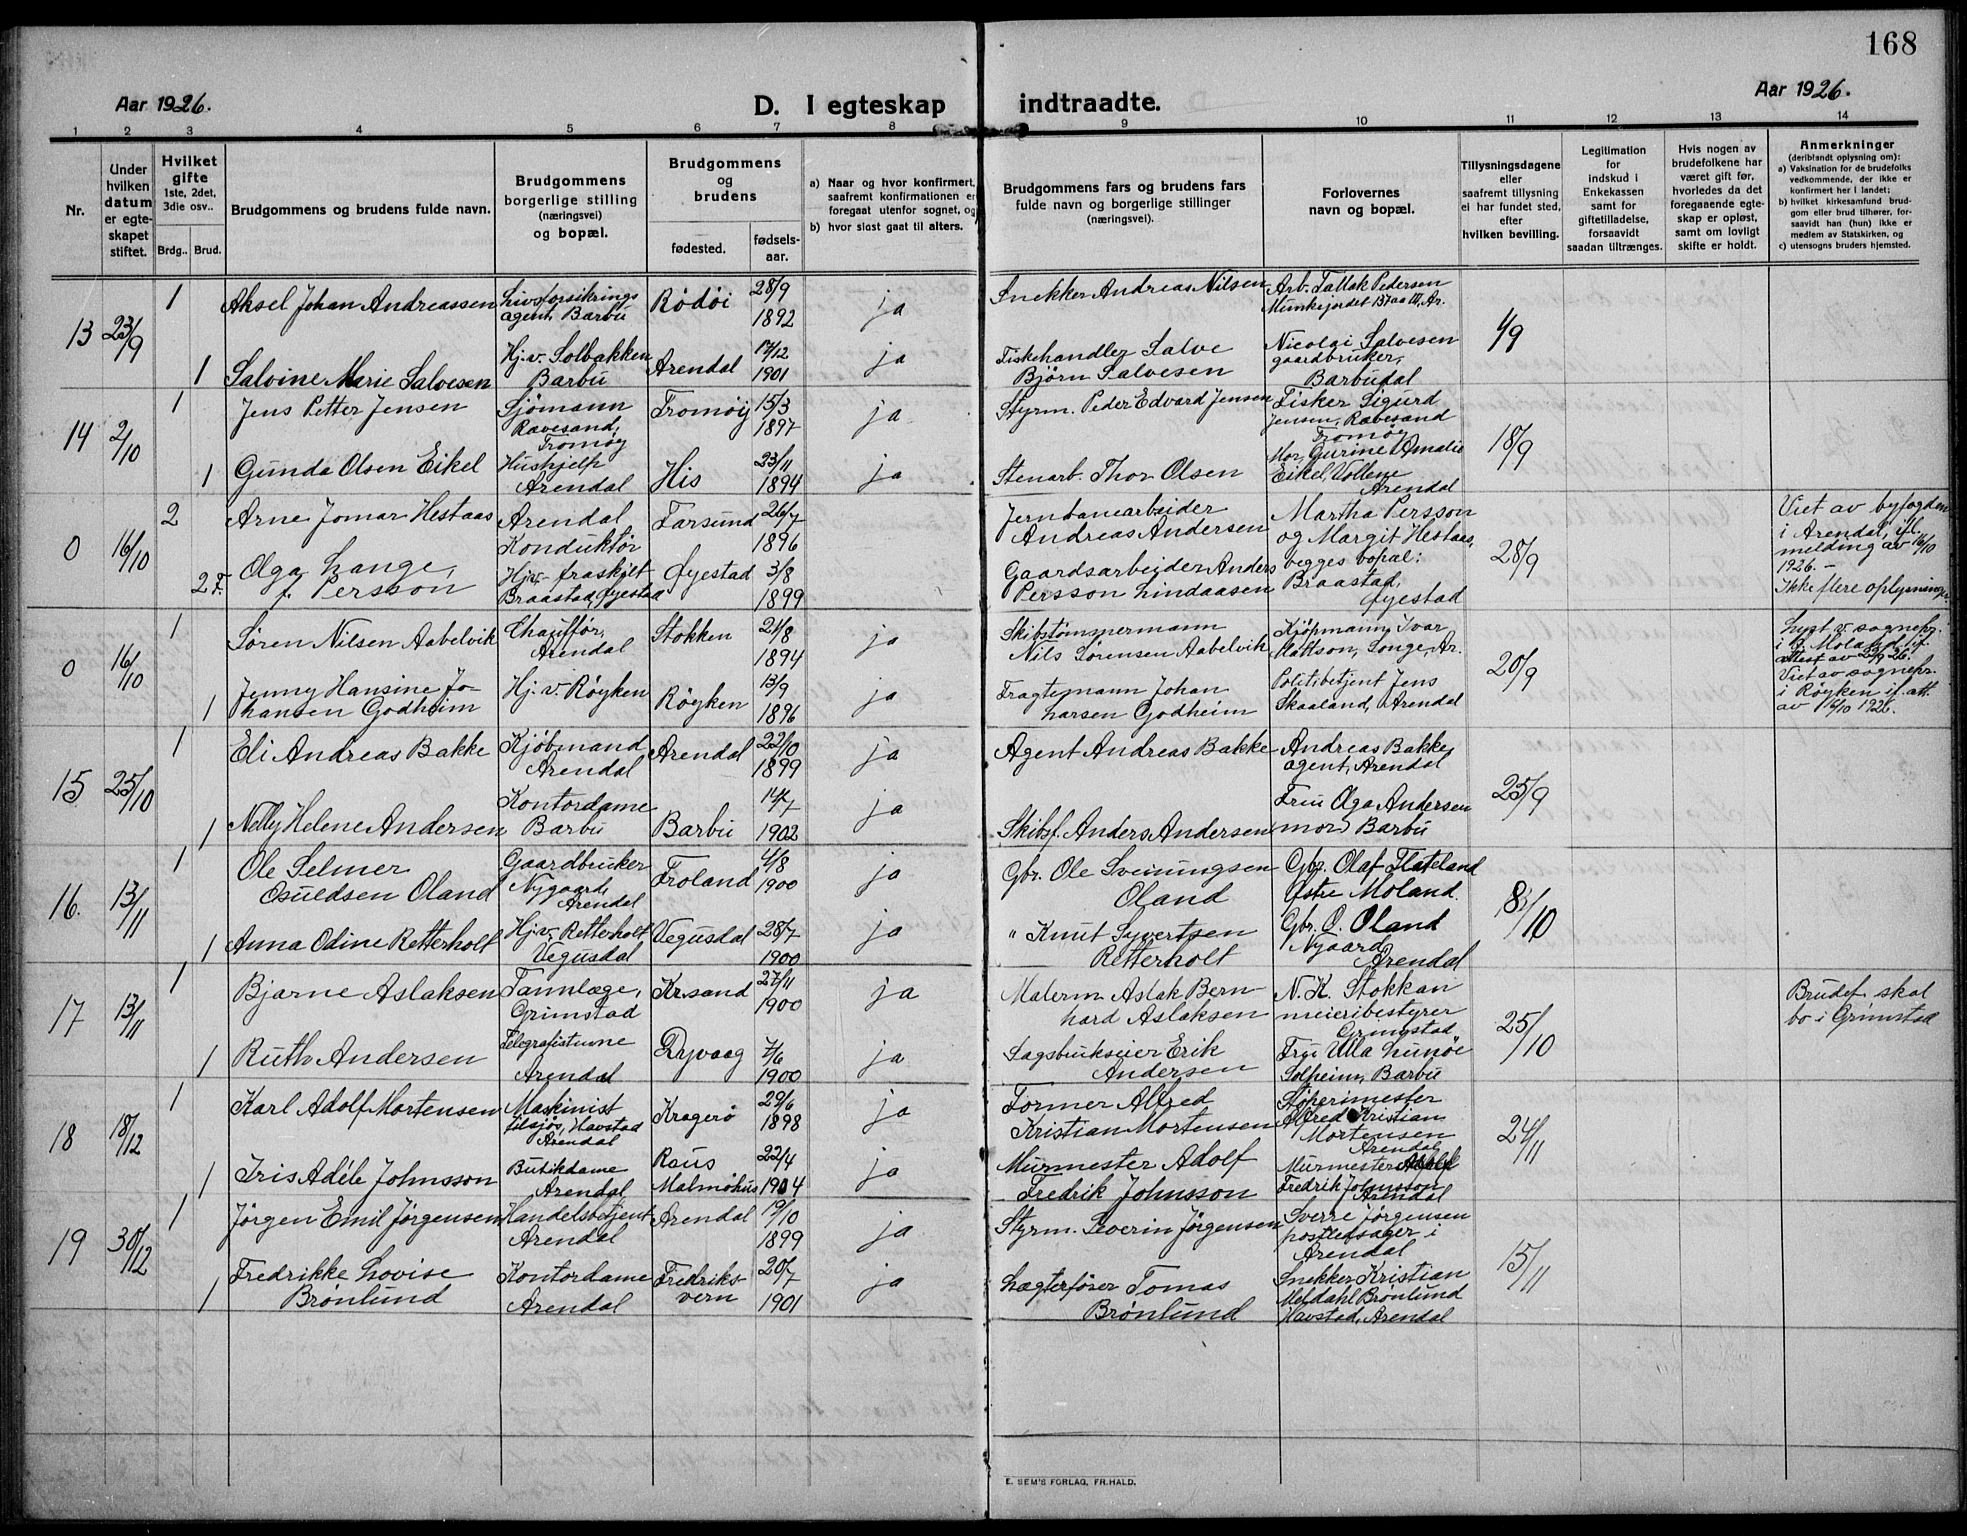 168
Aar 1926.
D. I egteskap indtraadte.
Aar 1926.
1 2 3 4 5 6 7 8 9 10 11 12 13 14
Nr.
Under hvilken datum er egteskapet stiftet.
Hvilket gifte 1ste, 2det, 3die osv..
Brdg.. Brud.
Brudgommens og brudens fulde navn.
Brudgommens borgerlige stilling (næringsvei) og bopæl.
Brudgommens og brudens
fødested. fødsels-aar.
a) Naar og hvor konfirmert, saafremt konfirmationen er foregaat utenfor sognet, og
b) hvor sidst gaat til alters.
Brudgommens fars og brudens fars fulde navn og borgerlige stillinger (næringsvei).
Forlovernes navn og bopæl.
Tillysningsdagene eller saafremt tillysning ei har fundet sted, efter hvilken bevilling.
Legitimation for indskud i Enkekassen samt for giftetilladelse, forsaavidt saadan tiltrænges.
Hvis nogen av brudefolkene har været gift før, hvorledes da det foregaaende egteskap er opløst, samt om lovligt skifte er holdt.
Anmerkninger (deriblandt oplysning om):
a) Vaksination for de brudefolks vedkommende, der ikke er konfirmert her i landet;
b) hvilket kirkesamfund brudgom eller brud tilhører, forsaavidt han (hun) ikke er medlem av Statskirken, og
c) utensogns bruders hjemsted.
13 23/9 1 Aksel Johan Andreassen Livsforsikrings agent, Barbu Rödöi 28/9 1892 ja Snekker Andreas Nilsen Arb. Tallak Pedersen Munkejordet 137aa III, Ar. 4/9
1 Salvine Marie Salvesen Hj. v. Solbakken Barbu Arendal 17/12 1901 ja Fiskehandler Salve Bjørn Salvesen Nicolai Salvesen gaardbruker, Barbudal
14 2/10 1 Jens Petter Jensen Sjömann Ravesand, Tromøy Tromøy 15/3 1897 ja Styrm. Peder Edvard Jensen Fisker Sigurd Jensen, Ravesand Tromøy 18/9
1 Gunda Olsen Eikel Hushjelp Arendal His 23/11 1894 ja Stenarb. Thor Olsen Mor, Gurine Amalie Eikel, Vollene Arendal
0 16/10 2 Arne Jomar Hestaas Arendal Konduktör Farsund 26/7 1896 Jernbanearbeider Andreas Andersen Martha Persson og Margit Hestaas, 28/9 Viet av byfogden i Arendal, ifl. melding av 16/10 1926. - Ikke flere oplysninger.
2 F. Olga Lange, f. Persson Hj.v. fraskilt Braastad, Øyestad Øyestad 3/8 1899 Gaardsarbeider Anders Persson Lindaasen begges bopæl: Braastad, Øyestad
0 16/10 1 Søren Nilsen Aabelvik Chaufför, Arendal Stokken 21/8 1894 ja Skibstömmermann Nils Sørensen Aabelvik Kjöpmann Ivar Mattson, Songe, Ar. 20/9 Lyst v. sognepr. i Ø. Moland if. attest av 23/9 26.
1 Jenny Hansine Johansen Godheim Hj. v. Røyken Røyken 13/9 1896 ja Fragtemann Johan Larsen Godheim Politibetjent Jens Skaaland, Arendal Viet av sognepr. i Røyken if. att. av 16/10 1926.
15 25/10 1 Eli Andreas Bakke Kjöbmand Arendal Arendal 22/10 1899 ja Agent Andreas Bakke Andreas Bakke, agent, Arendal 25/9
1 Nelly Helene Andersen Kontordame Barbu Barbu 14/7 1902 ja Skibsf. Anders Andersen Fru Olga Andersen (mor) Barbu
16. 13/11 1 Ole Selmer Osuldsen Oland Gaardbruker Nygaard, Arendal Froland 4/8 1900 ja Gbr. Ole Sveinungsen Oland Gbr. Olaf Flateland Østre Moland. 8/10
1 Anna Odine Retterholt Hj.v. Retterholt Vegusdal Vegusdal 28/7 1900 ja " Knut Syvertsen Retterholt Gbr. O. Oland Nygaard, Arendal
17 13/11 1 Bjarne Aslaksen Tannlæge, Grimstad Kr.sand 27/11 1900 ja Malerm. Aslak Bernhard Aslaksen N. K. Stokkan meieribestyrer Grimstad 25/10 Brudef. skal bo i Grimstad
1 Ruth Andersen Telegrafistinne Arendal Dypvaag 7/6 1900 ja Sagbrukseier Erik Andersen Fru Ulla Lunöe Solheim, Barbu
18 18/12 1 Karl Adolf Mortensen Maskinist tilsjøs, Havstad Arendal Kragerö 29/6 1898 ja Former Alfred Kristian Mortensen Støperimester Alfred Kristian Mortensen Arendal 24/11
1 Iris Adéle Johnsson Butikdame Arendal Raus Malmöhus 22/4 1904 ja Murmester Adolf Fredrik Johnsson Murmester Adolf Fredrik Johnsson Arendal
19 30/12 1 Jörgen Emil Jörgensen Handelsbetjent Arendal Arendal 19/10 1899 ja Styrm. Severin Jörgensen Sverre Jörgensen postledsager i Arendal 15/11
1 Fredrikke Lovise Brönlund Kontordame Arendal Fredriksvern 20/7 1901 ja Lægterfører Tomas Brönlund Snekker Kristian Meldahl Brönlund Havstad, Arendal
E. SEM'S FORLAG, FR.HALD.